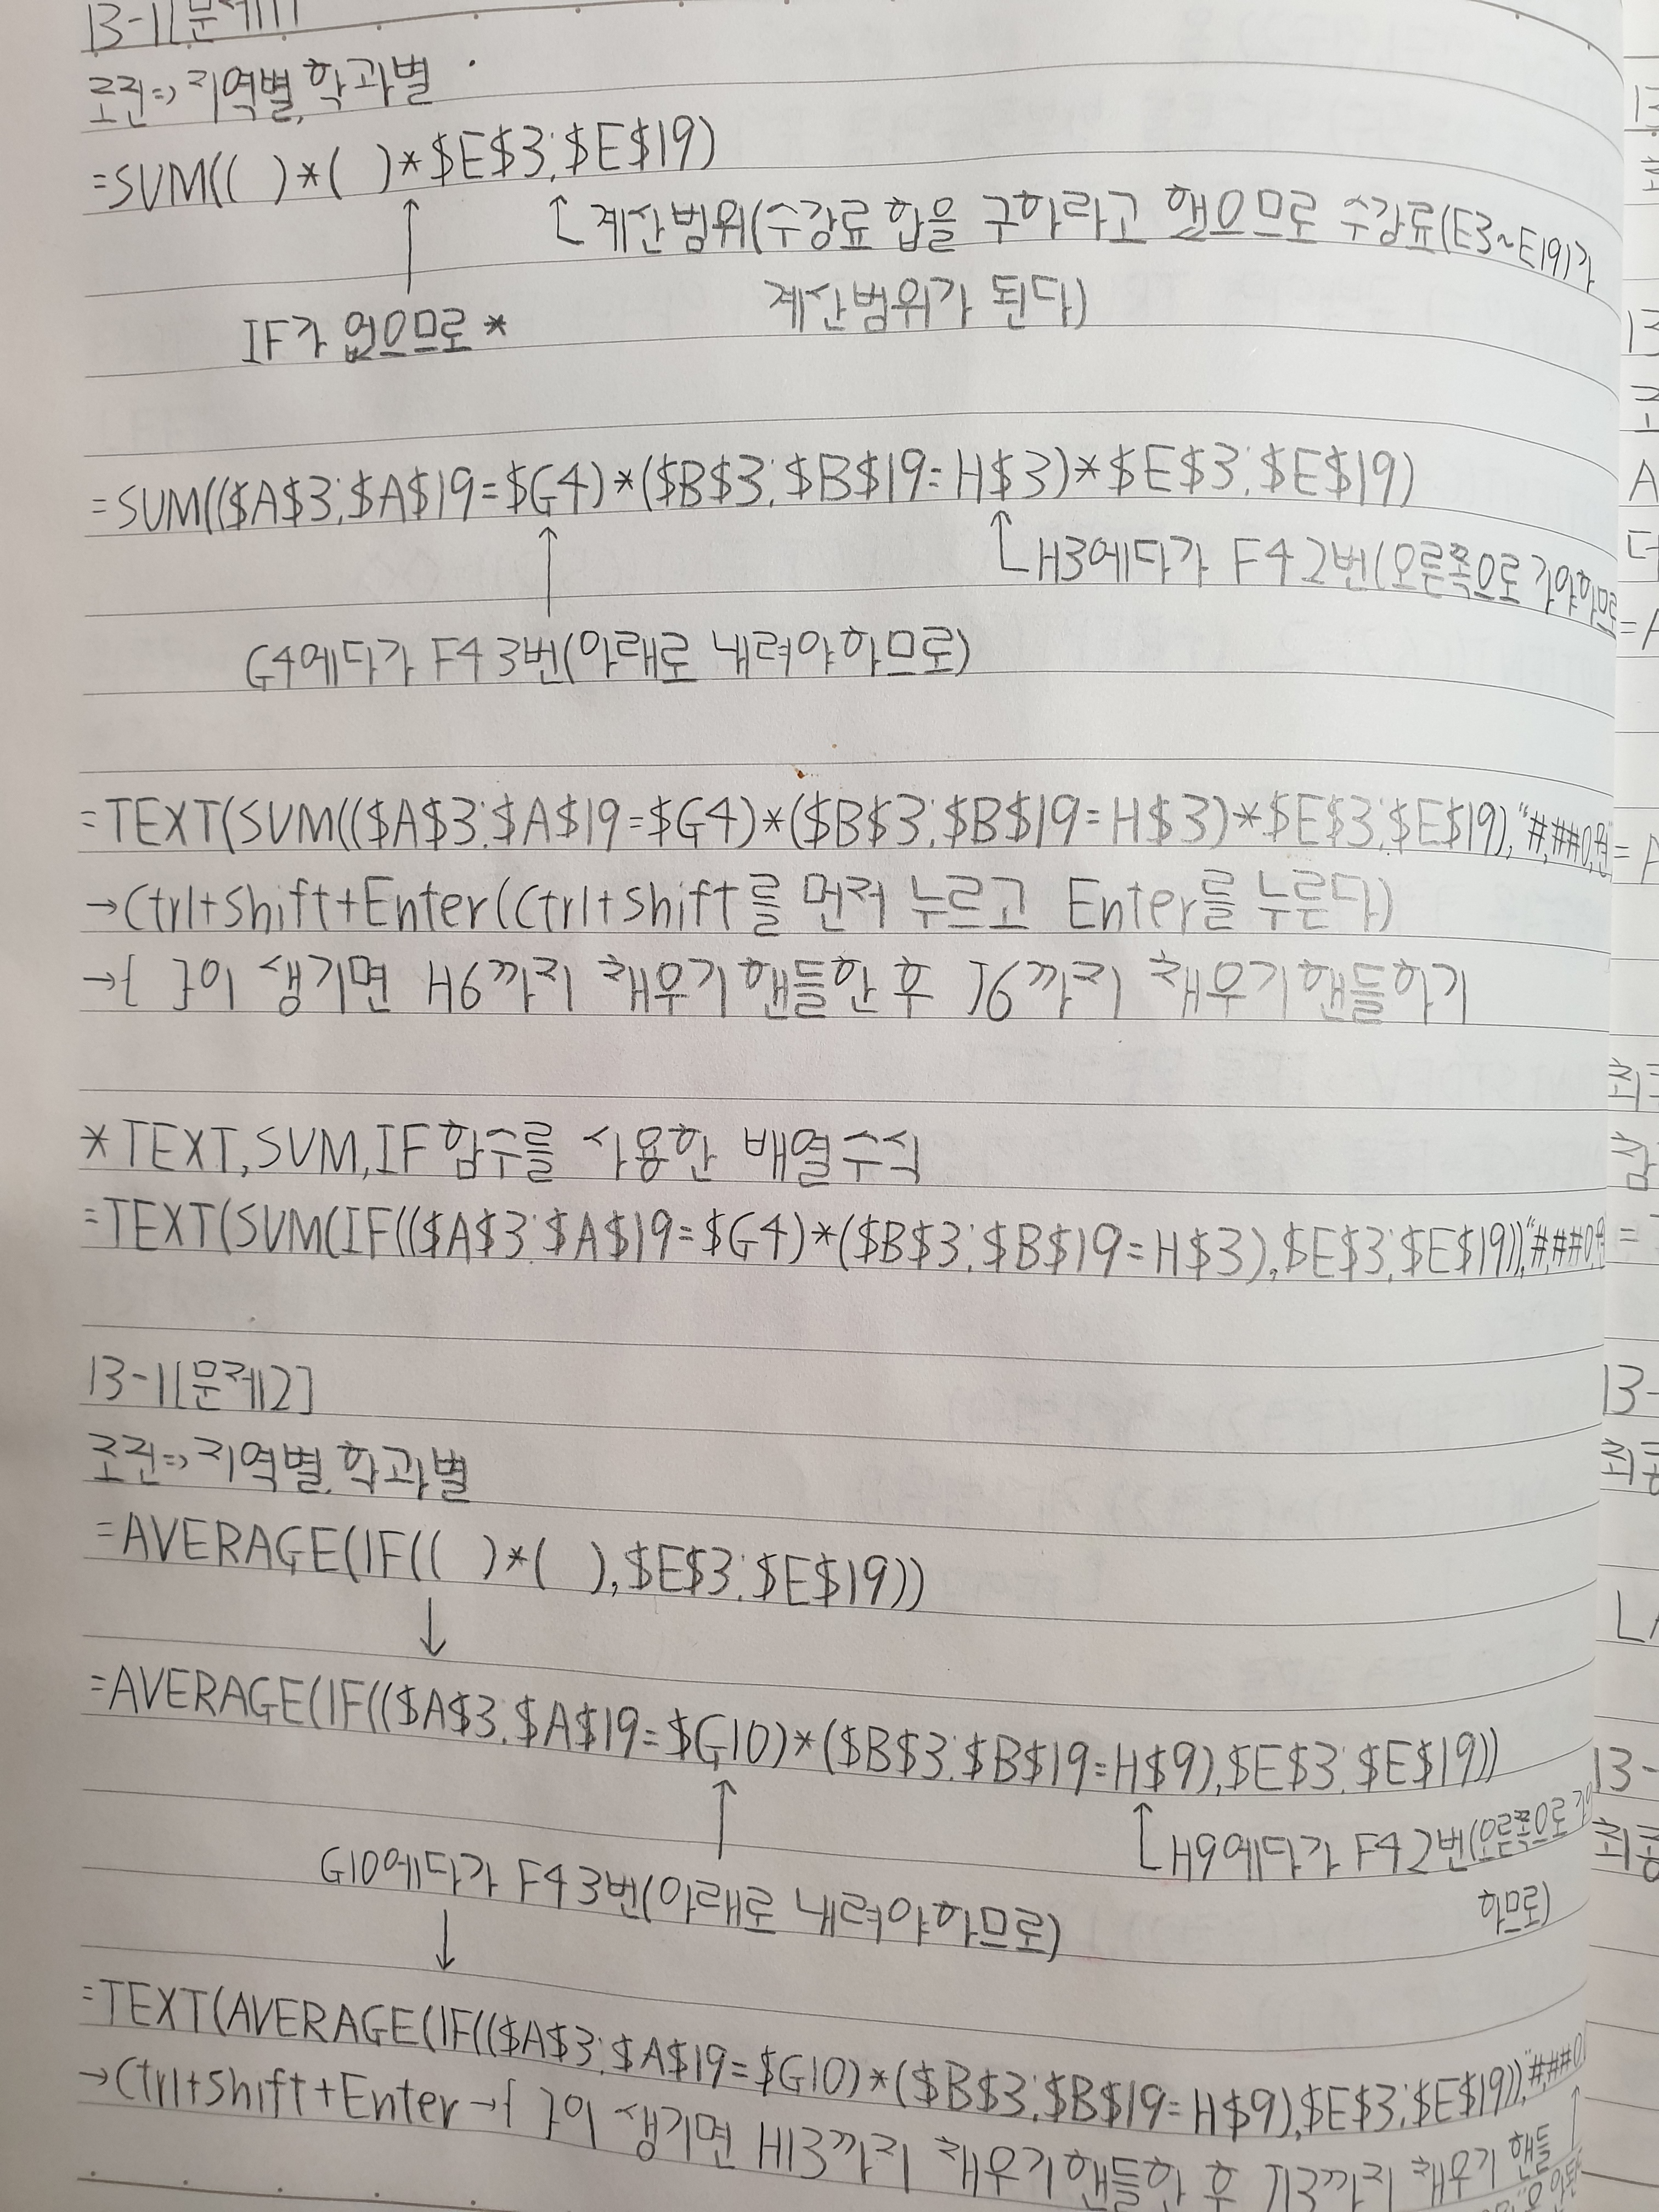 13-1[문제1]
조건=>지역별,학과별
=SUM(( )*( )*$E$3:$E$19)
계산범위(수강료 합을 구하라고 했으므로 수강료(E3~E19)가
계산범위가 된다)
IF가 없으므로 *
=SUM(($A$3:$A$19=$G4)*($B$3:$B$19=H$3)*$E$3:$E$19)
H3에다가 F4 2번(오른쪽으로 가야하므로
G4에다가 F4 3번(아래로 내려야하므로)
=TEXT(SUM(($A$3:$A$19=$G4)*($B$3:$B$19=H$3)*$E$3:$E$19),"#,##0원"
→Ctrl+Shift+Enter(Ctrl+Shift를 먼저 누르고 Enter를 누른다)
→{ }이 생기면 H6까지 채우기핸들한 후 J6까지 채우기핸들하기
*TEXT,SUM,IF함수를 사용한 배열수식
=TEXT(SUM(IF(($A$3:$A$19=$G4)*($B$3:$B$19=H$3),$E$3:$E$19)),"#,##0원
13-1[문제2]
조건=>지역별,학과별
=AVERAGE(IF(( )*( ),$E$3:$E$19))
=AVERAGE(IF(($A$3:$A$19=$G10)*($B$3:$B$19=H$9),$E$3:$E$19))
H9에다가 F4 2번(오른쪽으로 가야
하므로)
G10에다가 F4 3번(아래로 내려야하므로)
=TEXT(AVERAGE(IF(($A$3:$A$19=$G10)*($B$3:$B$19=H$9),$E$3:$E$19)),"#,##0
→Ctrl+Shift+Enter→{ }이 생기면 H13까지 채우기핸들한 후 J13까지 채우기 핸들